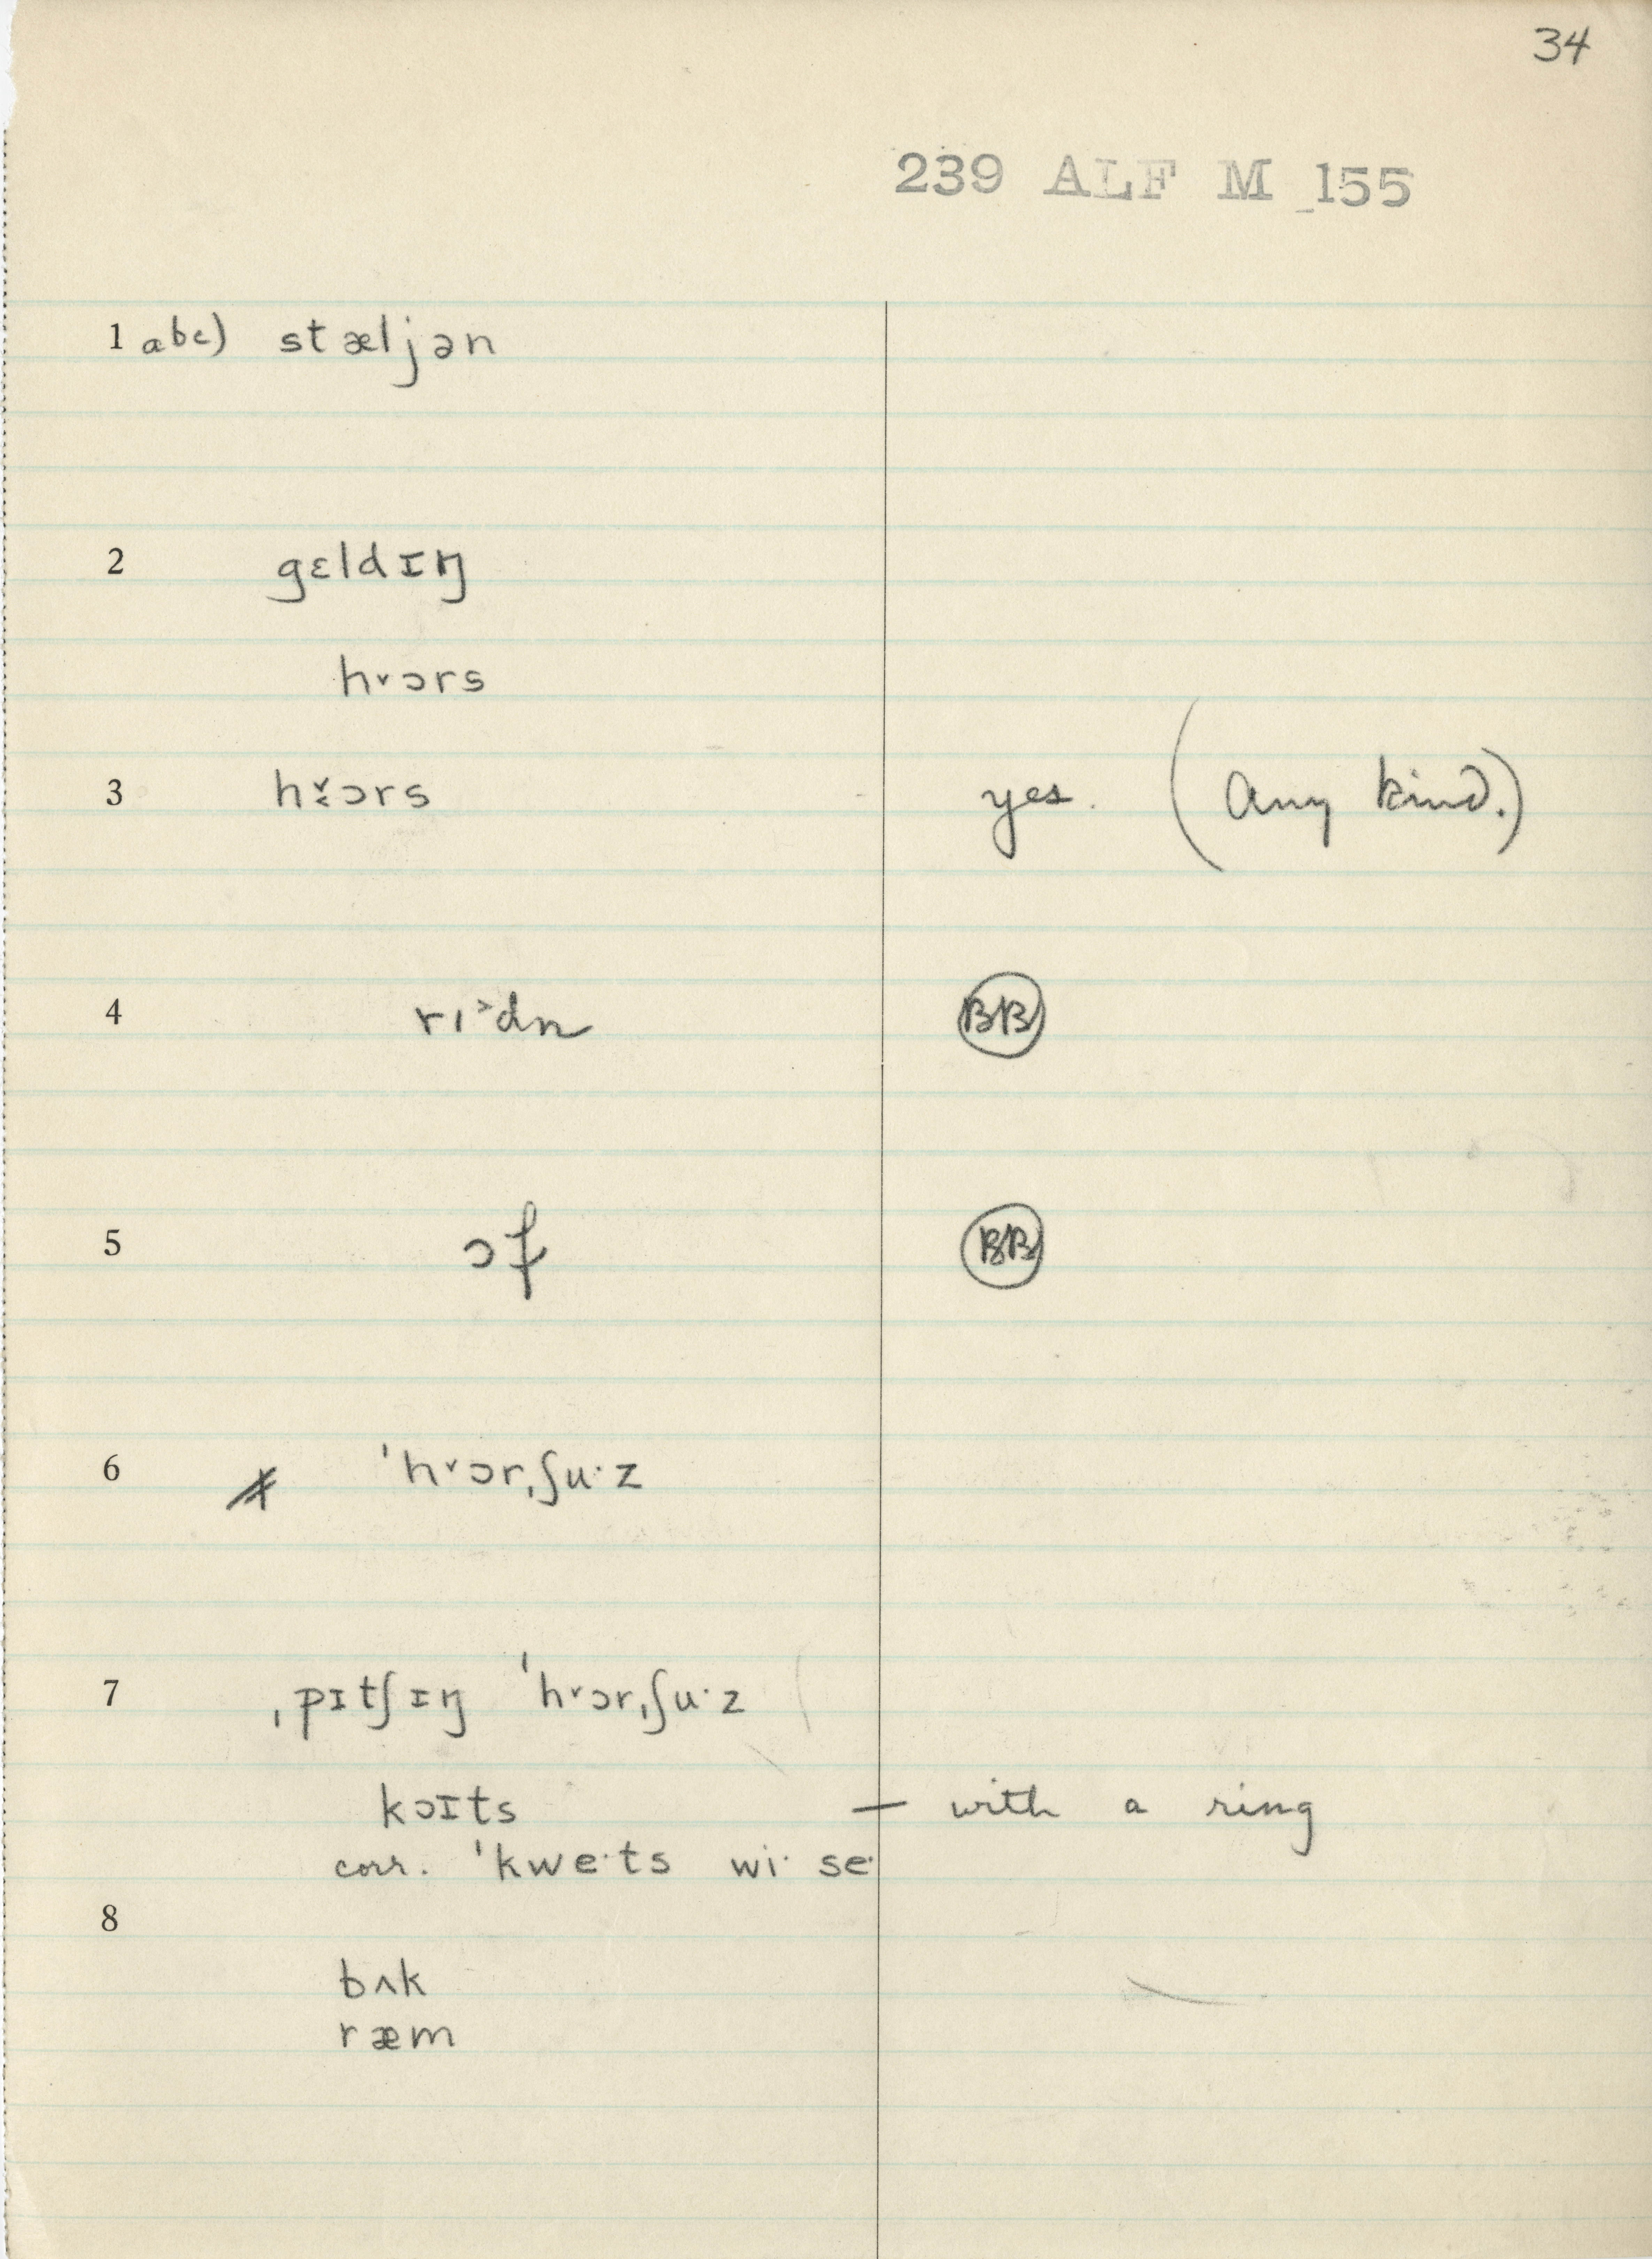 34
239 ALF M 155
1 abc) stæljən
2 gɛldɪŋ
h˅ɔrs
3 h˅ɔrs yes. (any kind.)
4 rɪ˃dn BB
5 ɔf BB
6 ˈh˅ɔrˌʃu·z
7 ˌpɪtʃɪŋ ˈh˅ɔrˌʃu·z
kɔɪts — with a ring
corr. ˈkwe·ts wi· se·
8
bʌk
ræm